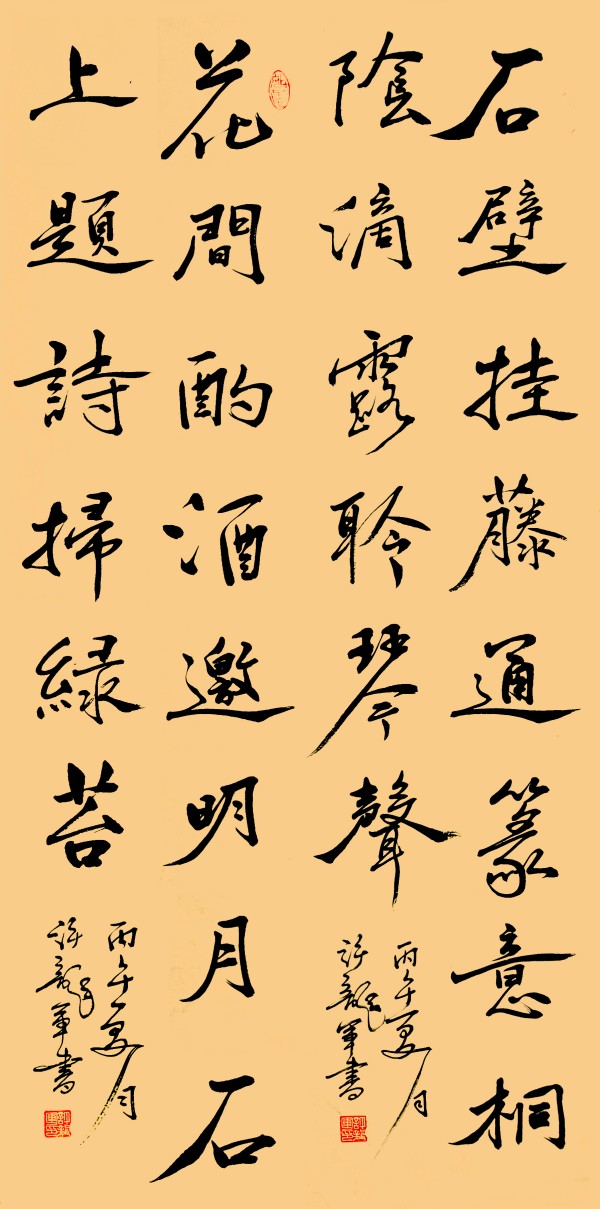 石壁挂藤通篆意桐
陰滴露聆琴聲
丙午夏月
許龍軍書
花間酌酒邀明月石
上題詩掃緑苔
丙午夏月
許龍軍書